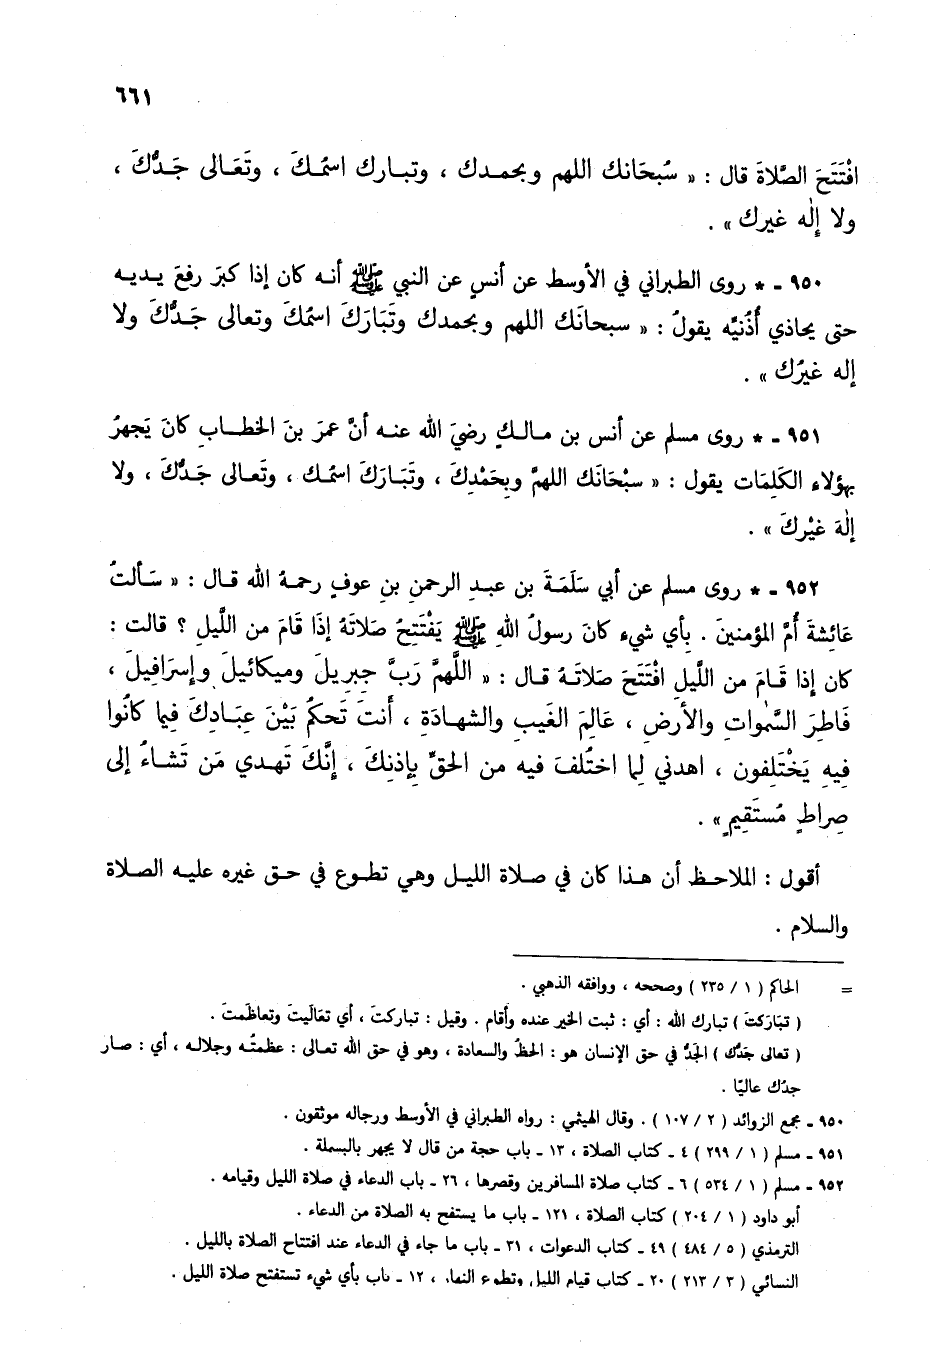 ٦٦١
افْتَتَحَ الصَّلاةَ قال : « سُبحَانك اللهم وبحمـدك ، وتبـارك اسمُـكَ ، وتَعَـالى جَـدُّكَ ،
ولا إلٰه غيرك » .
٩٥٠ ـ * روى الطبراني في الأوسط عن أنسٍ عن النبي ﷺ أنـه كان إذا كبرَ رفعَ يـديـه
حتى يحاذي أُذُنيْه يقولُ : « سبحانَك اللهم وبحمدك وتَبَارَكَ اسمُكَ وتعالى جَـدُّكَ ولا
إله غيرُك » .
٩٥١ ـ * روى مسلم عن أنس بن مـالـكٍ رضيَ الله عنـه أنَّ عمرَ بنَ الخطـابِ كانَ يَجهرُ
بهؤلاء الكَلِمَات يقول : « سبْحَانَك اللهمَّ وبِحَمْدِكَ ، وتَبَارَكَ اسمُـك ، وتَعـالى جَـدُّكَ ، ولا
إلٰهَ غيْركَ » .
٩٥٢ ـ * روى مسلم عن أبي سَلَمَةَ بن عبـدِ الرحمنِ بنِ عوفٍ رحمـهُ الله قـال : « سَـألتُ
عَائِشةَ أُمَّ المؤمنينَ . بأي شيءٍ كانَ رسولُ اللهِ ﷺ يَفْتَتِحُ صَلاتَهُ إذَا قامَ من اللَّيلِ ؟ قالت :
كان إذا قَـامَ من اللَّيلِ افْتَتَحَ صَلاتَـهُ قـال : « اللَّهمَّ رَبَّ جِبريلَ وميكائيلَ وإسرَافِيلَ ،
فَاطِرَ السَّمٰواتِ والأرَضِ ، عَالِمَ الغَيبِ والشهادَةِ ، أنتَ تَحكمُ بَيْنَ عِبَـادِكَ فِيمَا كانُوا
فِيهِ يَخْتَلِفون ، اهدني لِما اختُلفَ فيه من الحقِّ بإذنِكَ ، إنَّكَ تَهـدي مَن تَشاءُ إلى
صِراطٍ مُستَقِيمٍ » .
أقول : الملاحـظ أن هـذا كان في صلاة الليـل وهي تطـوع في حـق غيره عليـه الصـلاة
والسلام .
= الحاكم ( ١ / ٢٣٥ ) وصححه ، ووافقه الذهبي .
( تبَارَكتَ ) تبارك الله : أي : ثبت الخير عنده وأقام . وقيل : تباركتَ ، أي تعَالَيتَ وتعاظَمتَ .
( تعالى جَدُّك ) الجَدُّ في حق الإنسان هو : الحظُّ والسعادة ، وهو في حق الله تعـالى : عظمتُـه وجلالـه ، أي : صـار
جدُك عاليًا .
٩٥٠ ـ مجمع الزوائد ( ٢ / ١٠٧ ) . وقال الهيثمي : رواه الطبراني في الأوسط ورجاله موثقون .
٩٥١ ـ مسلم ( ١ / ٢٩٩ ) ٤ ـ كتاب الصلاة ، ١٣ ـ باب حجة من قال لا يجهر بالبسملة .
٩٥٢ ـ مسلم ( ١ / ٥٣٤ ) ٦ ـ كتاب صلاة المسافرين وقصرها ، ٢٦ ـ باب الدعاء في صلاة الليل وقيامه .
أبو داود ( ١ / ٢٠٤ ) كتاب الصلاة ، ١٢١ ـ باب ما يستفح به الصلاة من الدعاء .
الترمذي ( ٥ / ٤٨٤ ) ٤٩ ـ كتاب الدعوات ، ٣١ ـ باب ما جاء في الدعاء عند افتتاح الصلاة بالليل .
النسائي ( ٣ / ٢١٣ ) ٢٠ ـ كتاب قيام الليل وتطوع النهار ، ١٢ ـ باب بأي شيء تستفتح صلاة الليل .